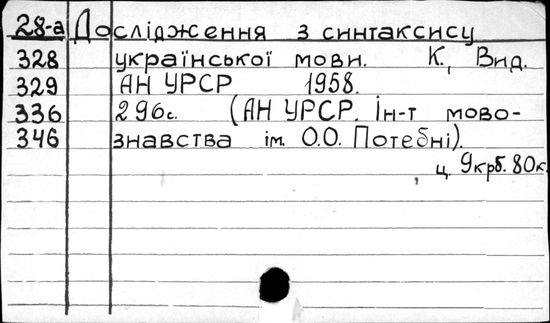 28-а Дослідження з синтаксису
328 української мови. К., Вид.
329 АН УРСР 1958.
336 296с. (АН УРСР. Ін-т мово-
346 знавства ім. О.О. Потебні).
ц. 9крб. 80к.